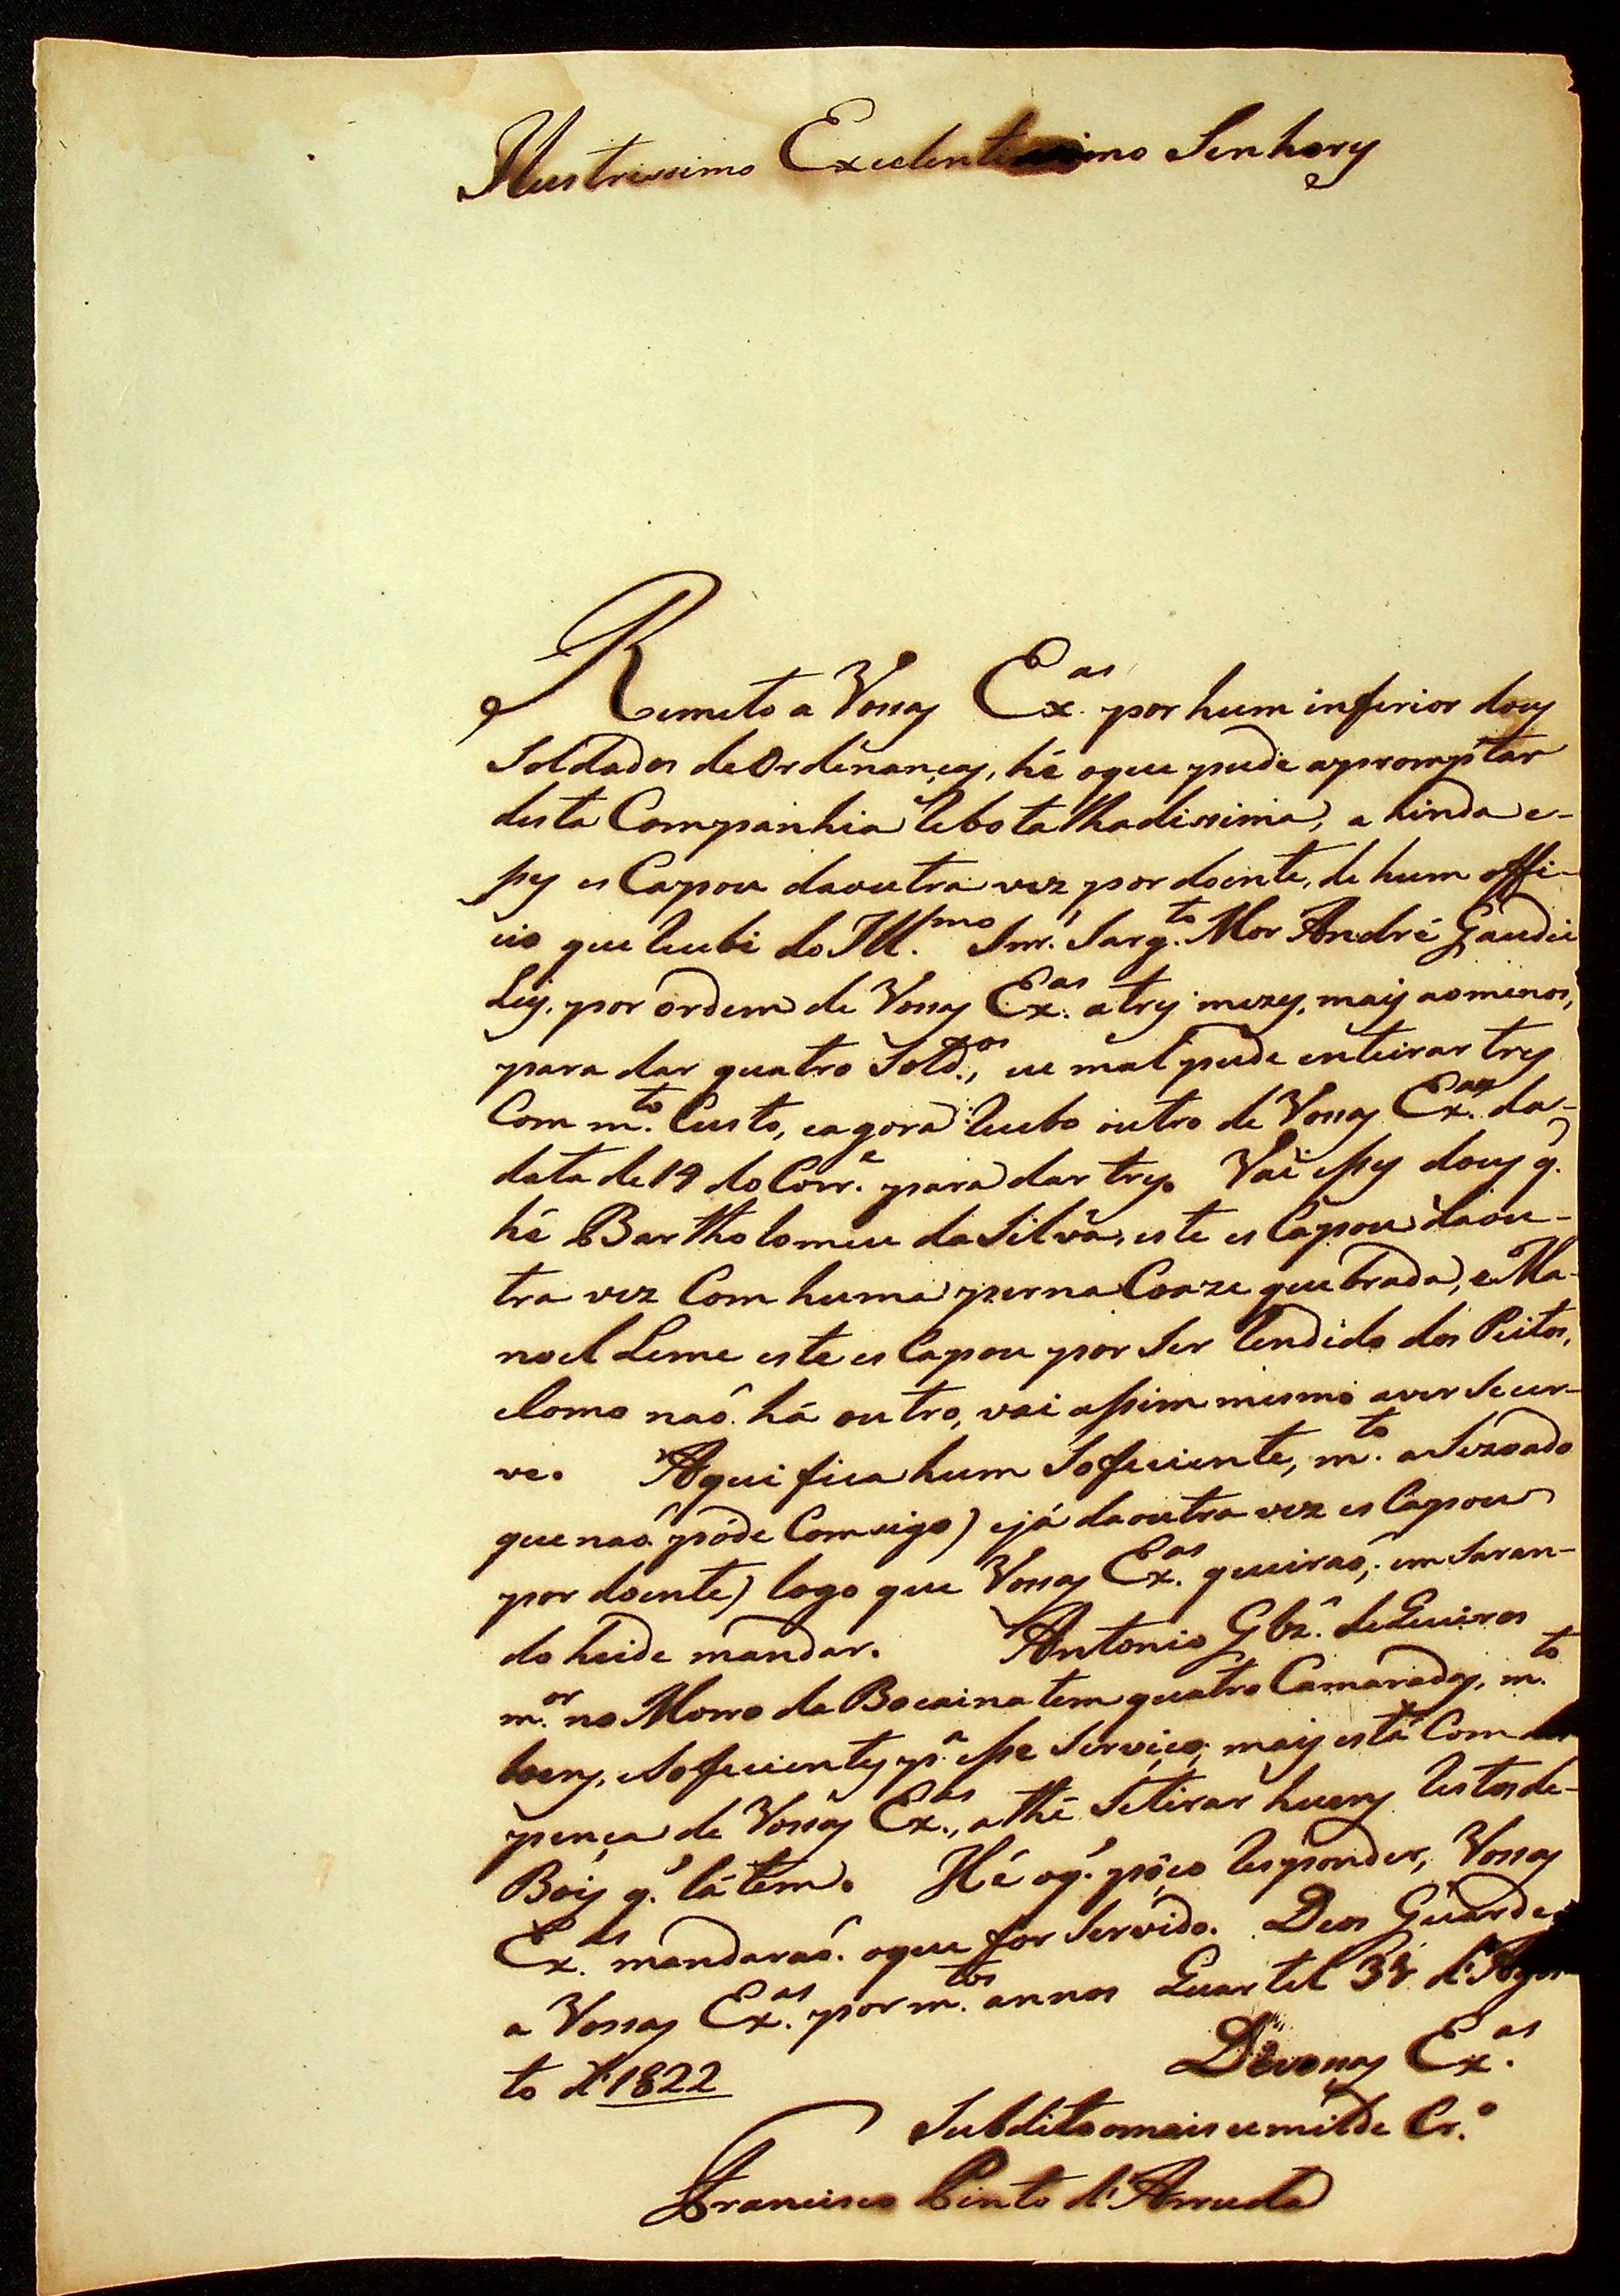 Illustrissimo Excelentissimo Senhores
Remeto a Vossas Ex.as por hum inferior dous
Soldados de Ordenanças, hé oque pude apromptar
desta Companhia rebotalhadissima, a hinda e-
sses escapou daoutra vez por doente, de hum offi-
cio que recebi do Ill.mo Snr. Sarg.to Mor André Gaudie
Ley, por ordem de Vossas Ex.as a tres mezes, mais aomenos,
para dar quatro Sold.os, eu mal pude enteirar tres
Com m.to Custo, eagora recebo outro de Vossas Ex.as da-
data de 19 do Corr.e para dar tres. Vai esses dous q.
hé Bartholomeu da Silva, este escapou daou-
tra vez Com huma perna Coaze quebrada, e Ma-
noel Leme este escapou por Ser rendido dos Peitos,
eComo naõ há outro, vai assim mesmo aver Secer-
ve. Aqui fica hum Soficiente, m.to aSezoado
quenaõ póde Comsigo) ejá daoutra vez escapou
por doente) logo que Vossas Ex.as queiraõ, em Saran-
do heide mandar. Antonio Glz. de Queiros
m.or no Morro da Bocaina tem quatro Camaradas, m.to
bons, eSoficientes p.a esse Serviço, mais está Com
pença de Vossas Ex.as, athé Setirar huns restos de-
Bois q. lá tem. Hé oq. póço responder, Vossas
Ex.as mandaraõ oque for Servido. Deos Guarde
a Vossas Ex.as por m.tos annos Quartel d'Agos
to d'1822
Devossas Ex.as
Subdito omais umilde Cr.o
Francisco Pinto d'Arruda